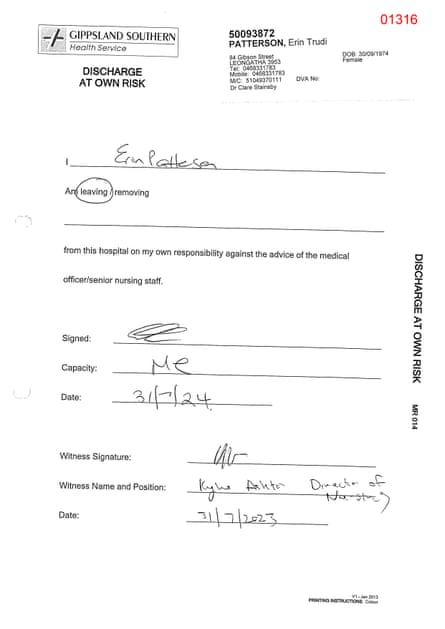 01316
GIPPSLAND SOUTHERN
Health Service
DISCHARGE
AT OWN RISK
50093872
PATTERSON, Erin Trudi
84 Gibson Street
LEONGATHA 3953
Tel: 0468331783
Mobile: 0468331783
M/C: 51049370111 DVA No:
Dr Clare Stainsby
DOB: 30/09/1974
Female
I Erin Patterson
Am leaving / removing
from this hospital on my own responsibility against the advice of the medical
officer/senior nursing staff.
Signed:
Capacity: Me
Date: 31/7/24
Witness Signature:
Witness Name and Position: Kylie Ashton Director of
Nursing
Date: 31/7/2023
DISCHARGE AT OWN RISK MR 014
V1 - Jan 2013
PRINTING INSTRUCTIONS: Colour